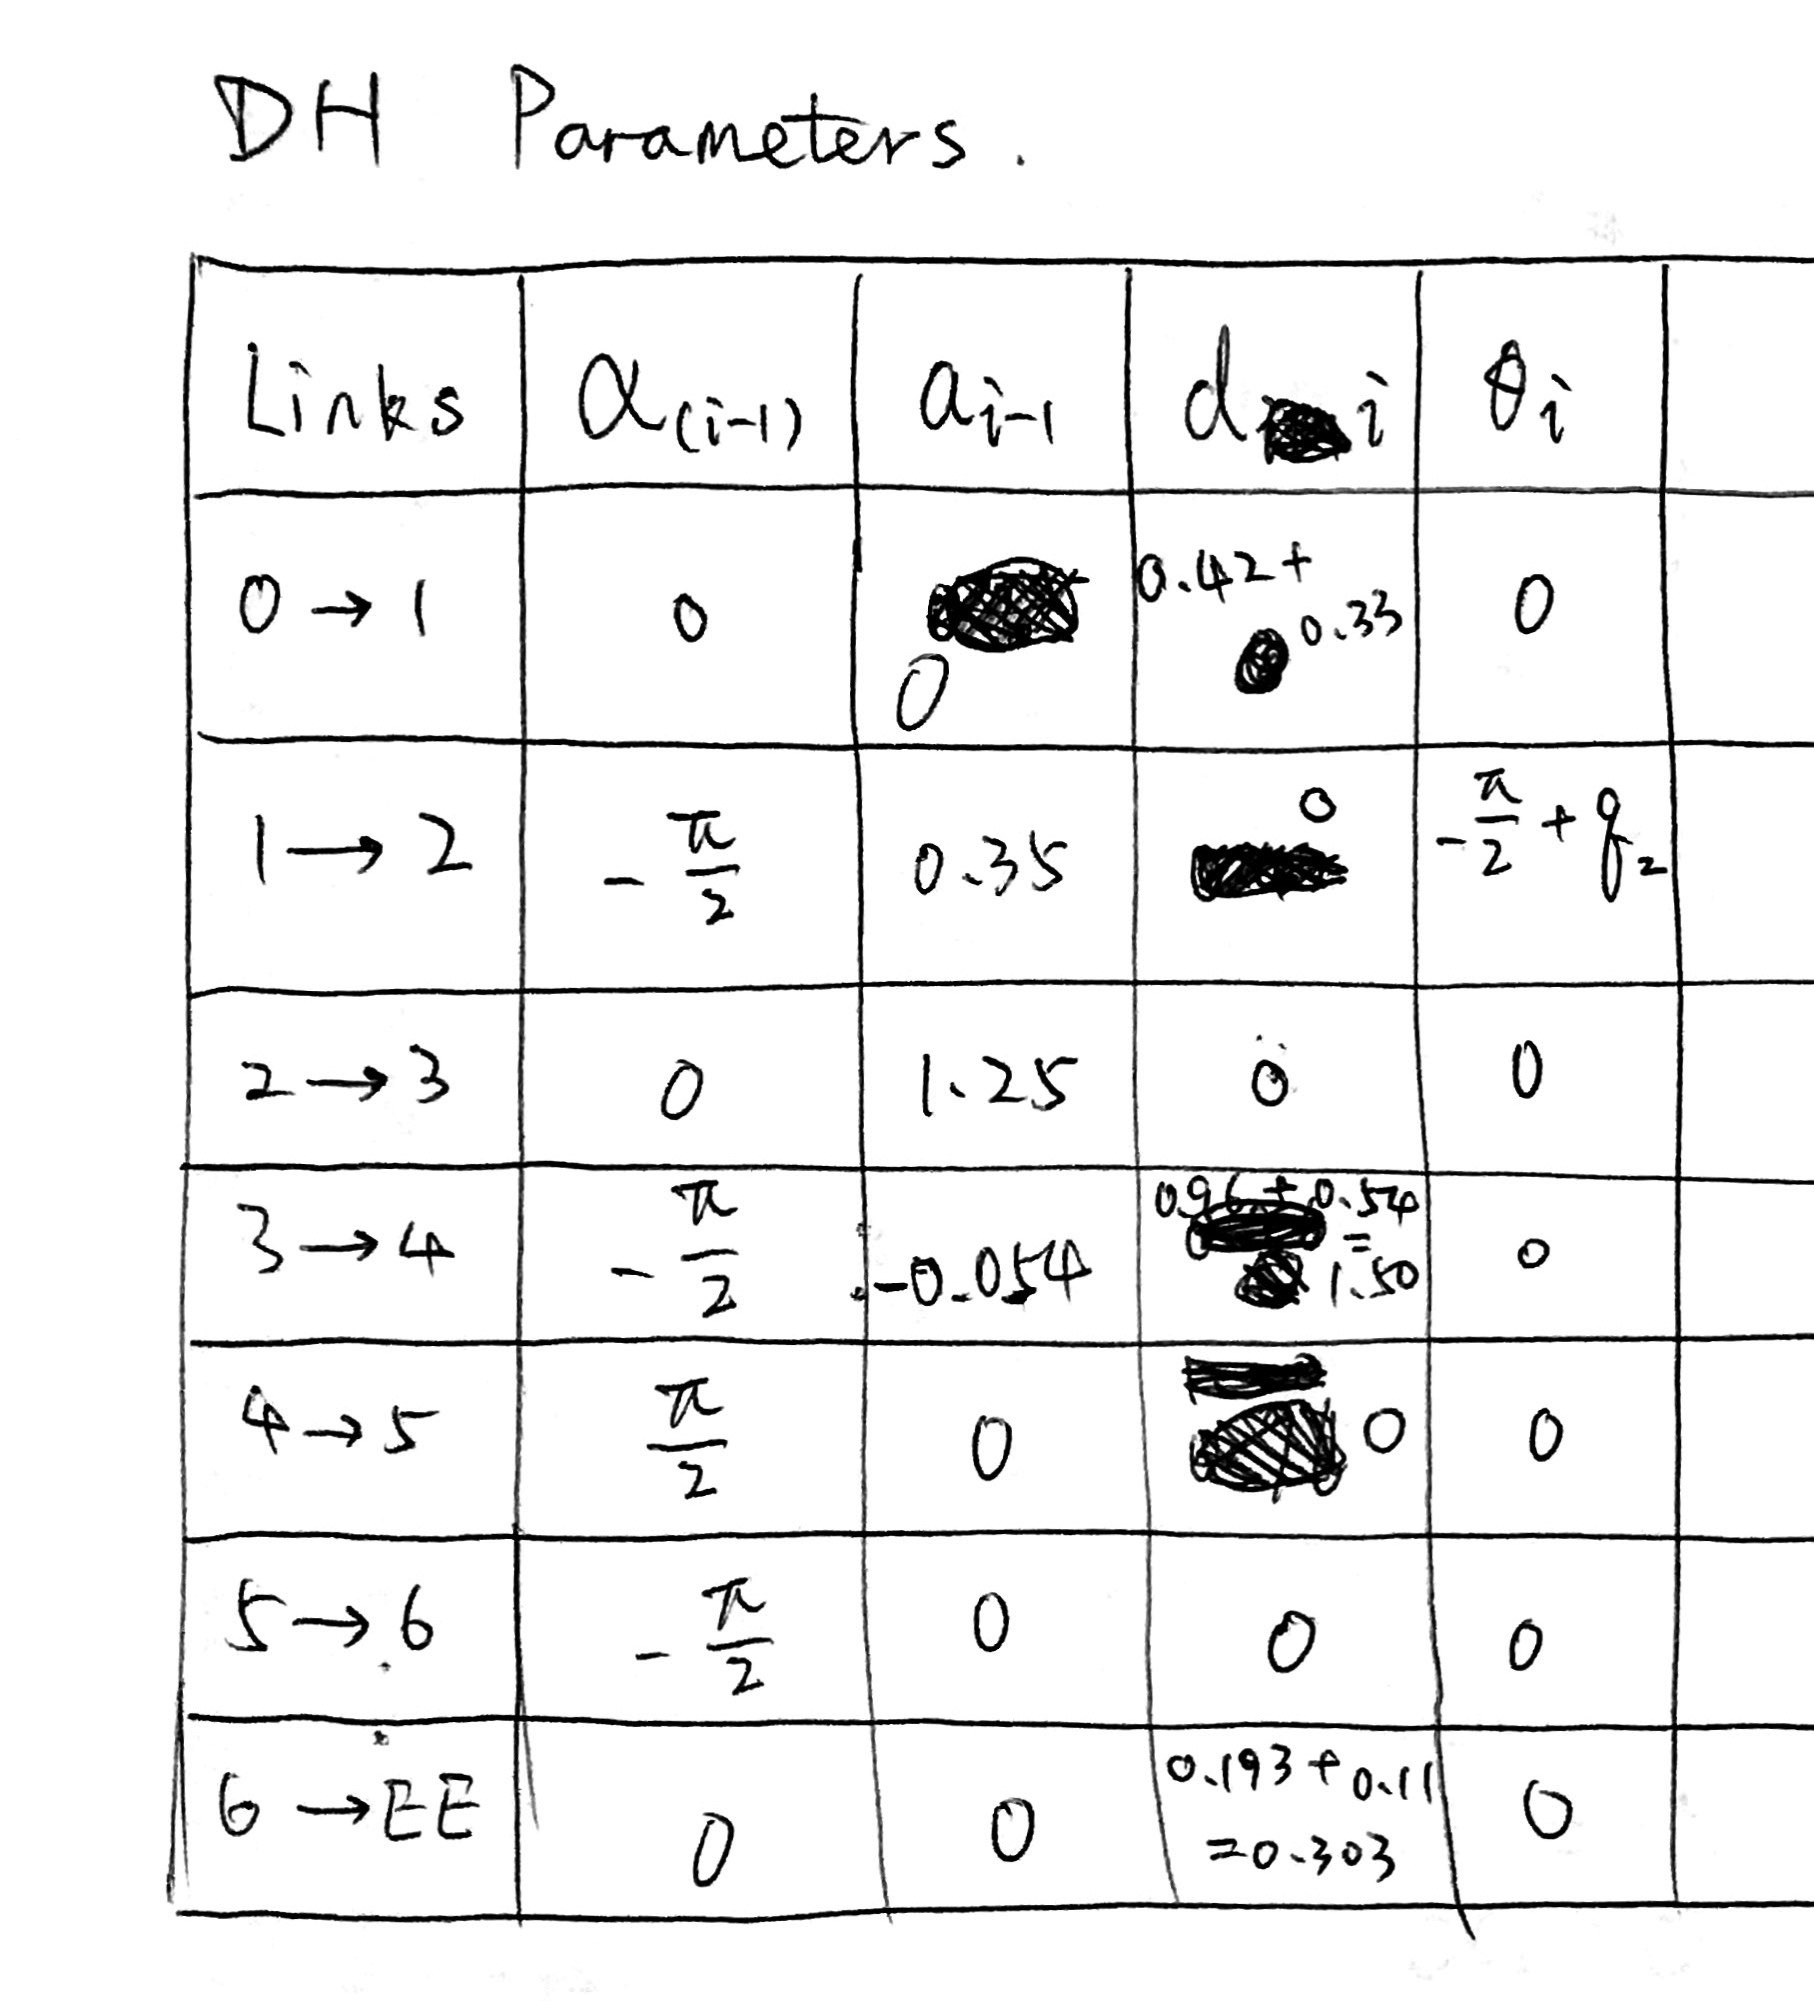 DH Parameters.
Links α(i-1) ai-1 di θi
0 → 1 0 0 0.42 + 0.33 0
1 → 2 -π/2 0.35 0 -π/2 + q2
2 → 3 0 1.25 0 0
3 → 4 -π/2 -0.054 0.96 + 0.54 = 1.50 0
4 → 5 π/2 0 0 0
5 → 6 -π/2 0 0 0
6 → EE 0 0 0.193 + 0.11 = 0.303 0